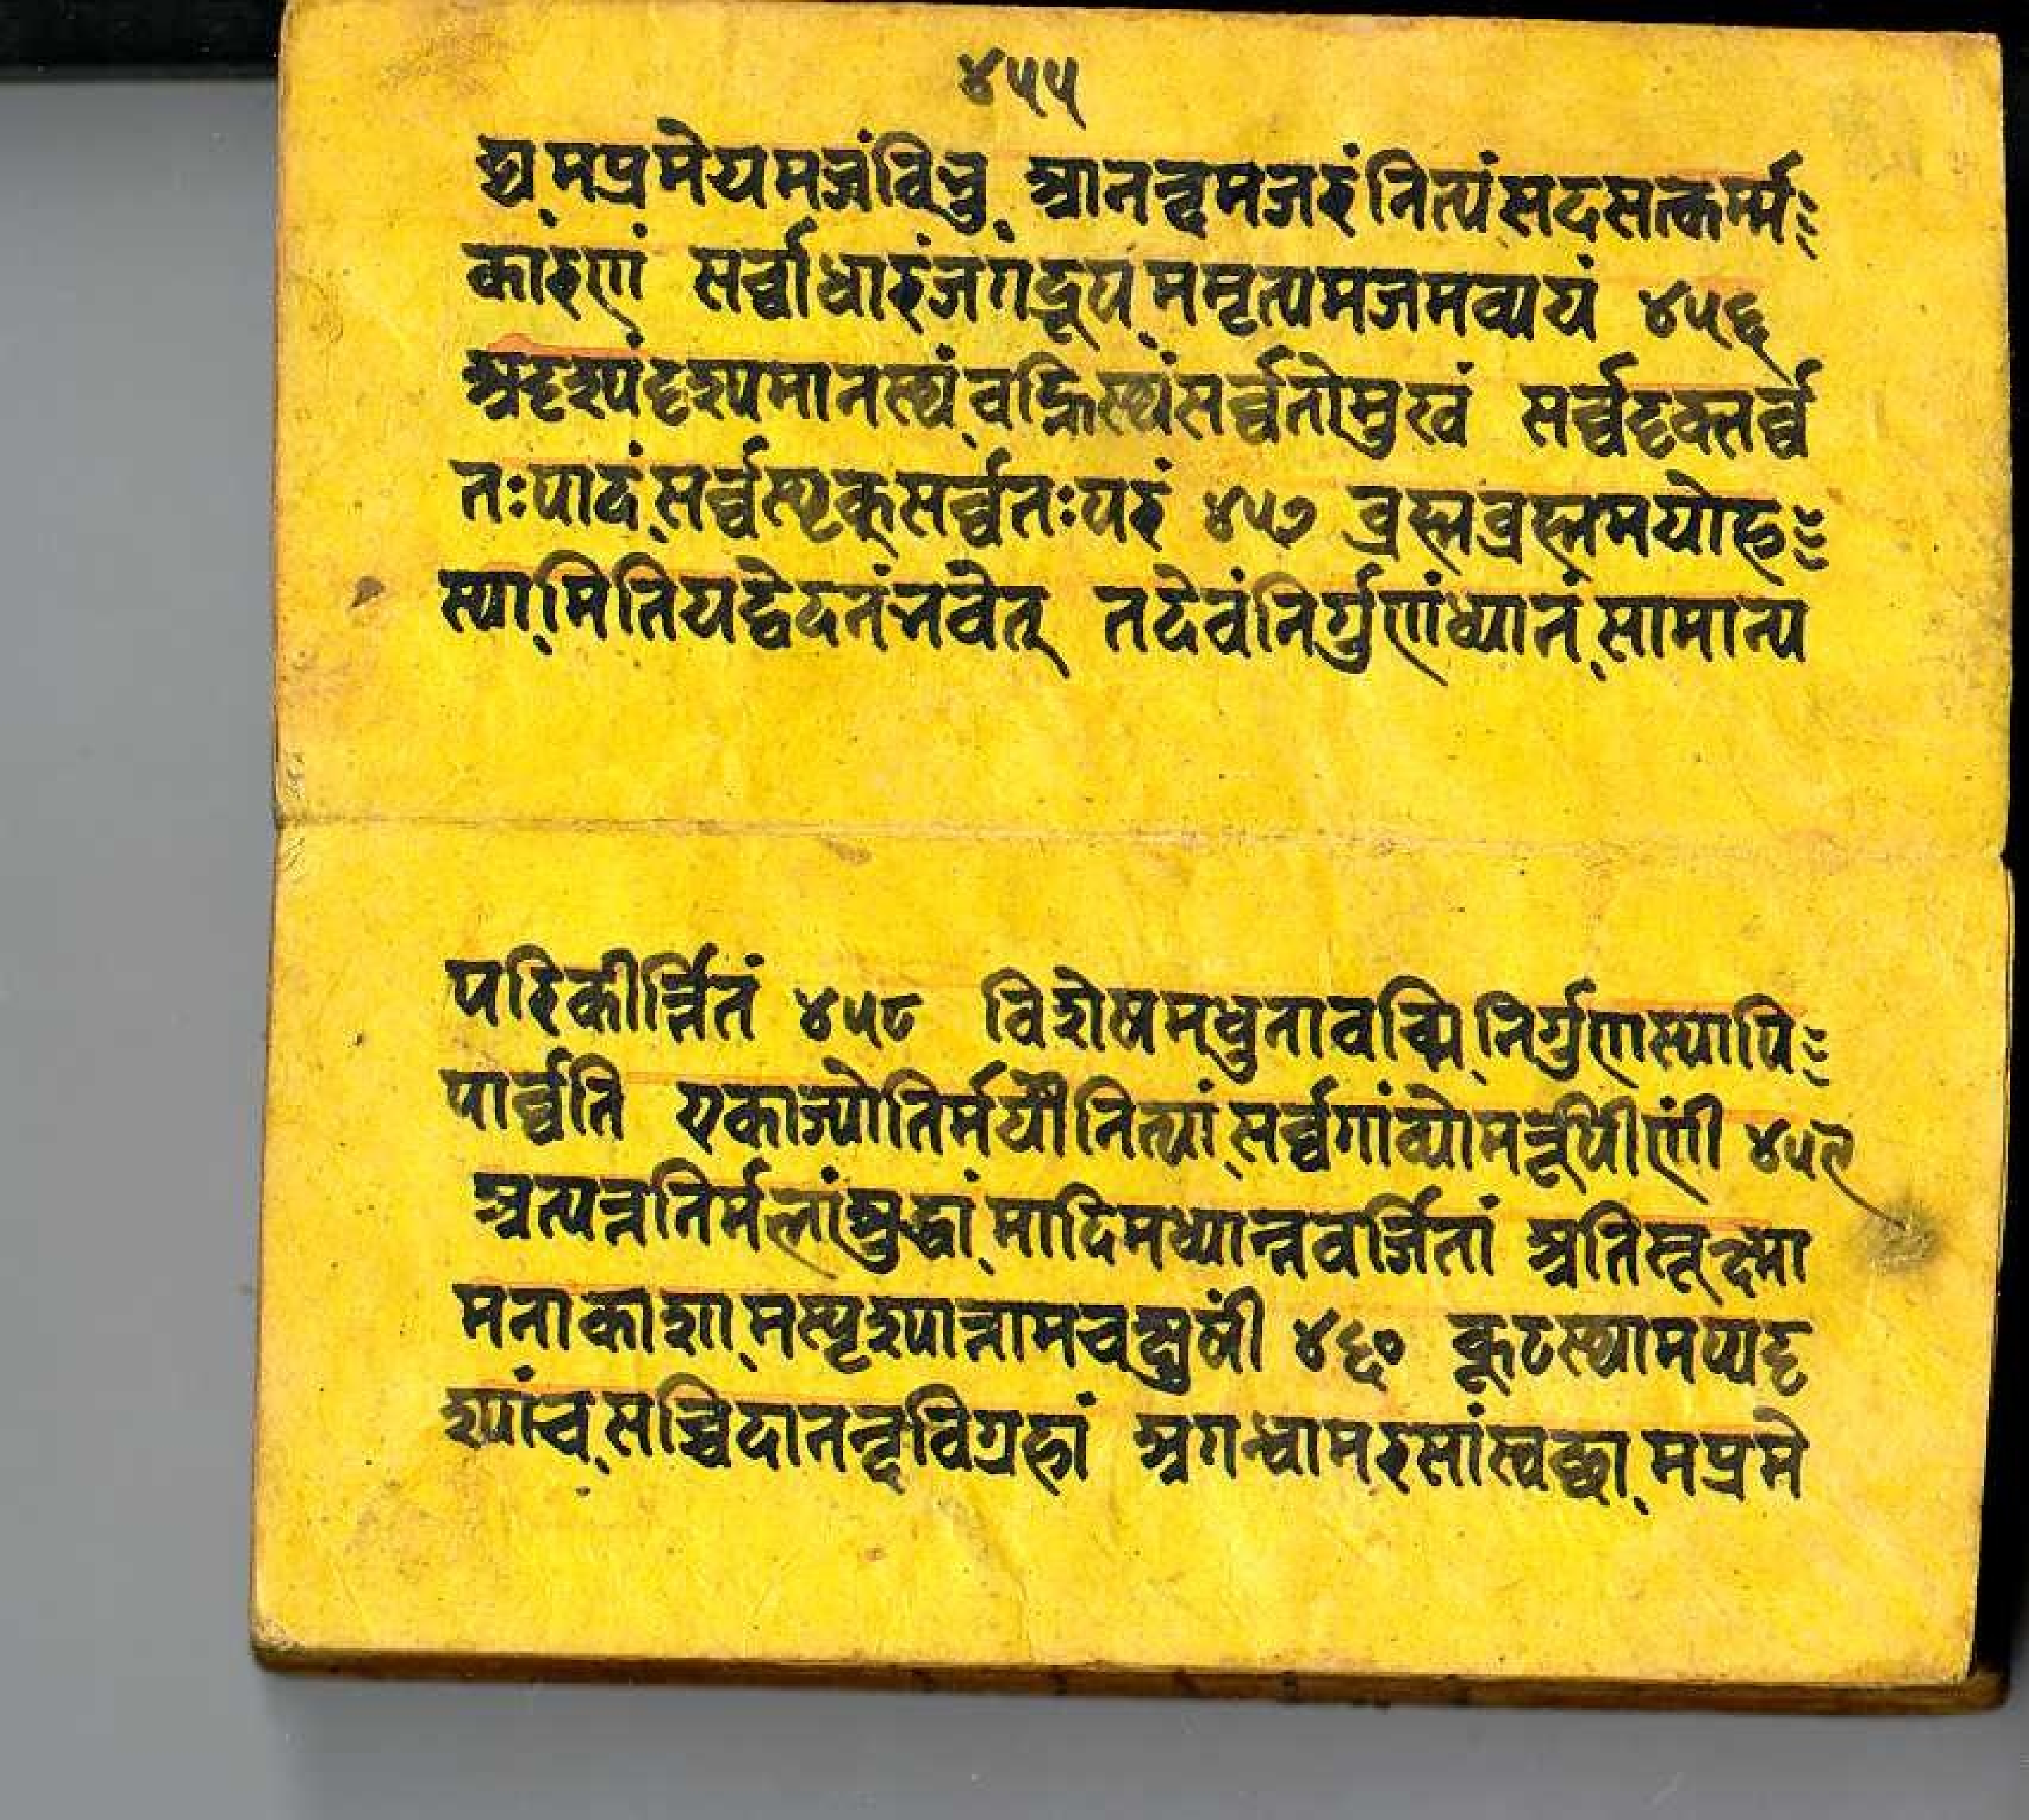 ४५५
द्यमप्रमेयमजंविभु आनन्दमजरंनित्यंसदसत्कर्म्म
कारंणं सर्व्वाधारंजगद्रूपममृत्यमजमव्ययं ४५६
अदृश्यंदृश्यमानस्थंवह्निस्थंसर्व्वतोमुखं सर्व्वदृक्सर्व्व
तःपादंसर्व्वस्पृक्सर्व्वतःपरं ४५७ ब्रह्मब्रह्ममयोह
स्यामितियद्वेदनंभवेत् तदेवंनिर्गुणंध्यानंसामान्य
परिकीर्त्तितं ४५८ विशेषमधुनावच्मिनिर्गुणस्यापि
पार्व्वति एकाज्योतिर्मयींनित्यांसर्व्वगांव्योमरूपीणीं ४५९
अत्यन्तनिर्मलांशुद्धामादिमध्यान्तवर्जितां अतिसूक्ष्मा
मनाकाशामस्पृश्यान्नामचक्षुषीं ४६० कूटस्थामप्यदृ
श्यांचसच्चिदानन्दविग्रहां अगन्धामरसांस्वच्छामप्रमे